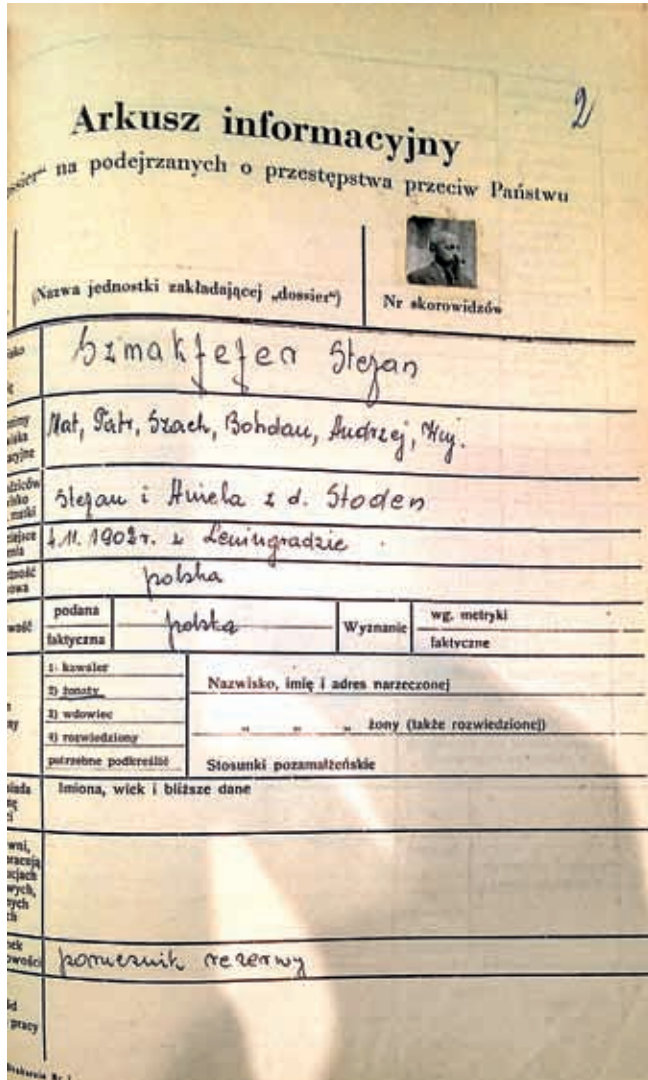 2
Arkusz informacyjny
na podejrzanych o przestępstwa przeciw Państwu
(Nazwa jednostki zakładającej „dossier")
Nr skorowidzów
Szmakfefer Stefan
Nat, Patr, Szach, Bohdan, Andrzej, Huj.
Stefan i Aniela z d. Stoden
4.11.1902r. w Leningradzie
polska
podana
faktyczna
polska
Wyznanie
wg. metryki
faktyczne
1) kawaler
2) żonaty
3) wdowiec
4) rozwiedziony
potrzebne podkreślić
Nazwisko, imię i adres narzeczonej
„ „ „ żony (także rozwiedzionej)
Stosunki pozamałżeńskie
Imiona, wiek i bliższe dane
porucznik rezerwy
pracy